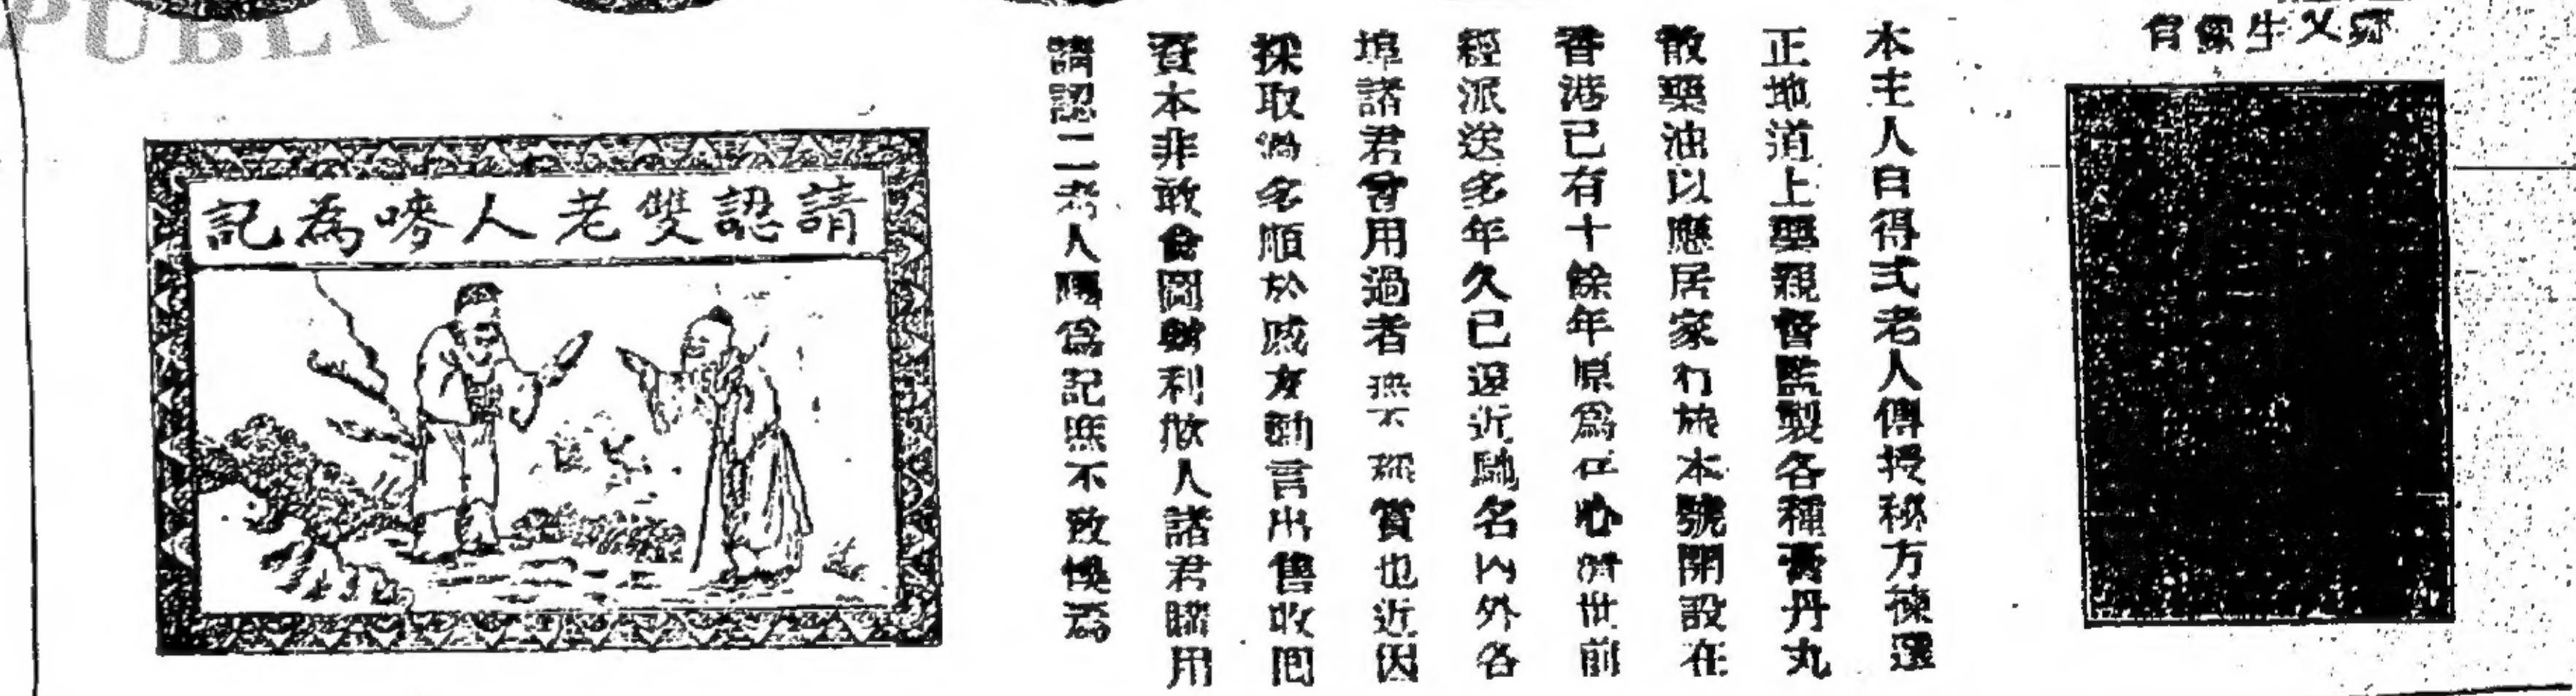 本主人自得弍老人傳授秘方揀選
正地道上藥親督監製各種膏丹丸
散藥油以應居家行旅本號開設在
香港已有十餘年原爲仁心濟世前
經派送多年久已遠近馳名內外各
埠諸君曾用過者無不稱賞也近因
採取過多順於戚友勸言出售收囘
資本非敢貪圖射利欺人諸君賜用
請認二老人嘜爲記庶不致悞爲
請認雙老人嘜為記
PUBLIC